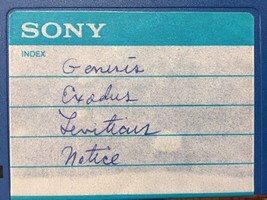 SONY
INDEX
Genesis
Exodus
Leviticus
Notice